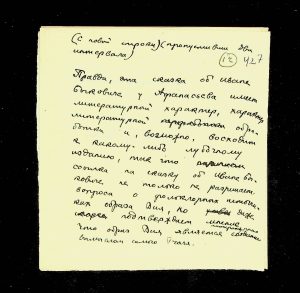 (с новой строки) (пропустивши два
интервала)
12 427
Правда, эта сказка об Иване
Быковиче у Афанасьева имеет
литературный характер, характер
литературной обра-
ботки и, возможно, восходит
к какому-либо лубочному
изданию, так что
ссылка на сказку об Иване Бы-
ковиче не только не разрешает
вопроса о фольклорных источни-
ках образа Вия, но
подтверждает мнение
что образ Вия является
самого Гоголя.